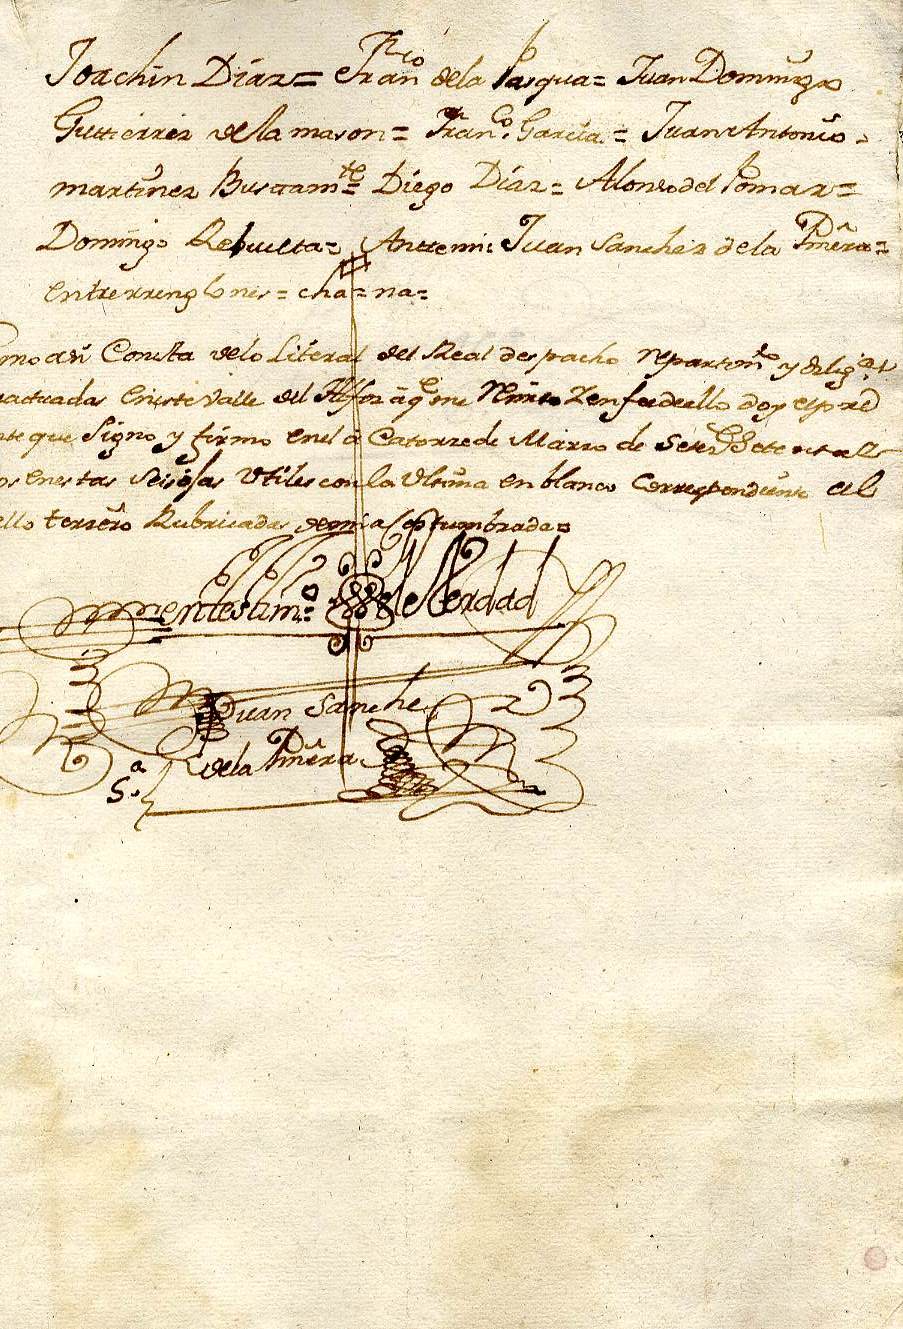 Joachin Diaz= Fran^co de la Pasqua= Juan Doming^z
Gutierrez de la mason= Fran^co. Garcia.= Juan Antonio
martinez Bustam^te= Diego Diaz= Alonso del Pomar=
Domingo Rebuelta= Anttemi: Juan Sanchez de la Pm̃era=
entrerrenglones= cha= na=
mo asi Consta de lo Literal del Real despacho repartim^to y dilig^as
actuadas en este Valle del Alfoz a q^e me Rem̃to Zenfee de ello doy el pre^
nte que Signo y firmo en el a Catorze de Marzo de Setez^s Setenta
os en estas Seis ojas Utiles con la Ultima en blanco Correspondiente al
ello terzero Rubricadas de mi acostumbrada=
en testim^o: de Verdad
Juan Sanchez
de la Pm̃era
S^a.